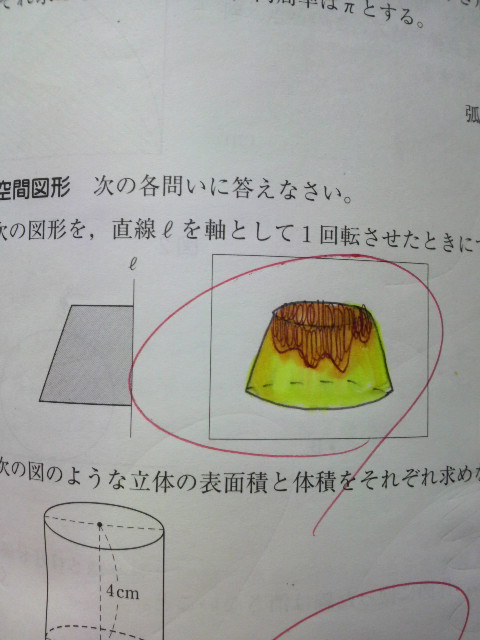 円周率はπとする。
弧
空間図形 次の各問いに答えなさい。
次の図形を，直線ℓを軸として１回転させたときに
ℓ
次の図のような立体の表面積と体積をそれぞれ求め
4cm